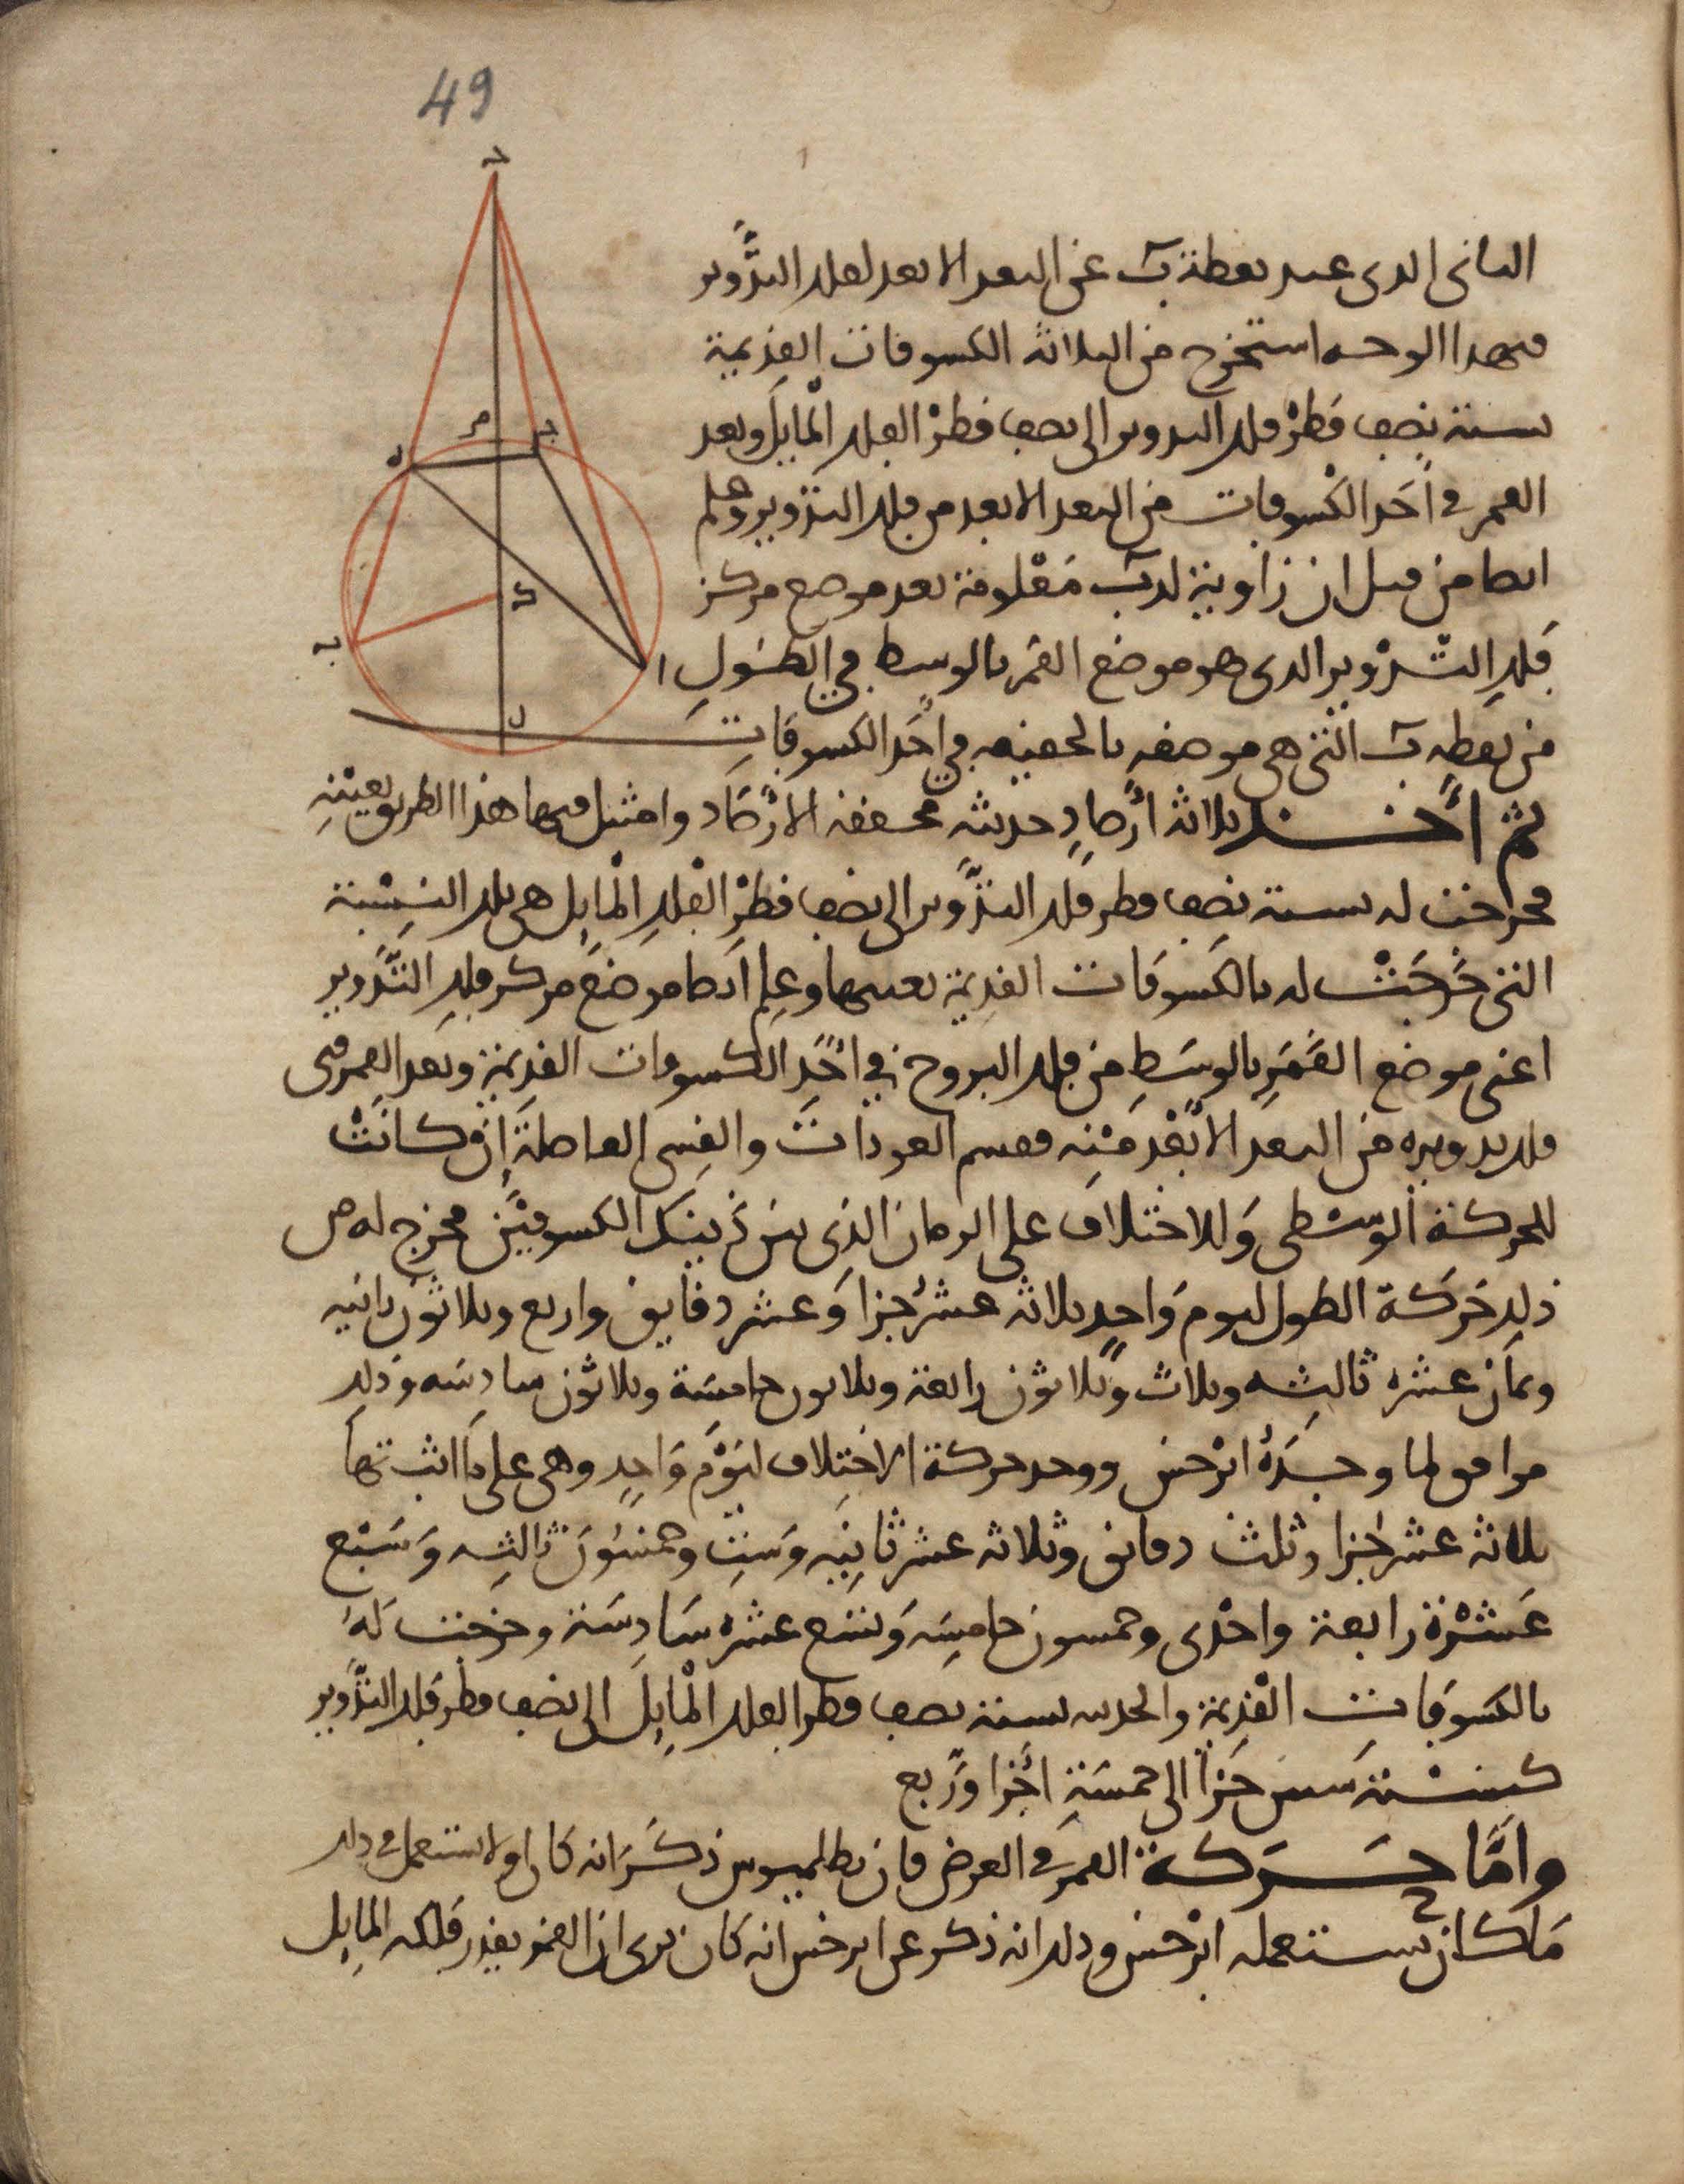 49
د
م ج
ه
ك
ب
ا
ل
الثانى الذى عند نقطة ب عن البعد الابعد لفلك التدوير
فبهذا الوجه استخرج من الثلاثة الكسوفات القديمة
نسبة نصف قطر فلك التدوير الى نصف قطر الفلك المايل وبعد
القمر فى احد الكسوفات من البعد الابعد من فلك التدوير وعلم
ايضا من قبل ان زاوية لدب معلومة بعد موضع مركز
فلك التدوير الذى هو موضع القمر بالوسط فى الطول
من نقطه ب التى هى موضعه بالحقيقه فى احد الكسوفات
ثم أخذ ثلاثة أرصاد حديثه محققة الارصاد وامتثل فيها هذا الطريق بعينه
فخرجت له نسبة نصف قطر فلك التدوير الى نصف قطر الفلك المايل هى تلك النسبة
التى خرجت له بالكسوفات القديمة بعينها وعلم ايضا موضع مركز فلك التدوير
اعنى موضع القمر بالوسط من فلك البروج فى احد الكسوفات القديمة وبعد القمر فى
فلك تدويره من البعد الابعد منه فقسم العودات والقسى الفاضلة ان كانت
للحركة الوسطى وللاختلاف على الزمان الذى بين ذينك الكسوفين فخرج له من
ذلك حركة الطول ليوم واحد ثلاثه عشر جزا وعشر دقايق واربع وثلاثون ثانيه
وثمان عشره ثالثه وثلاث وثلاثون رابعة وثلاثون خامسة وثلاثون سادسه وذلك
موافق لما وجده ابرخس ووجد حركة الاختلاف ليوم واحد وهى على ما اثبتها
ثلاثه عشر جزا وثلث دقايق وثلاثه عشر ثانيه وست وخمسون ثالثه وسبع
عشرة رابعة واحدى وخمسون خامسه وتسع عشره سادسة وخرجت له
بالكسوفات القديمة والحديثه نسبة نصف قطر الفلك المايل الى نصف قطر فلك التدوير
كنسبة ستين جزا الى خمسة اجزا وربع
واما حركة القمر فى العرض فان بطلميوس ذكر انه كان اولا استعمل فى ذلك
ما كان يستعمله ابرخس وذلك انه ذكر عن ابرخس انه كان يرى ان القمر يقدر فلكه المايل